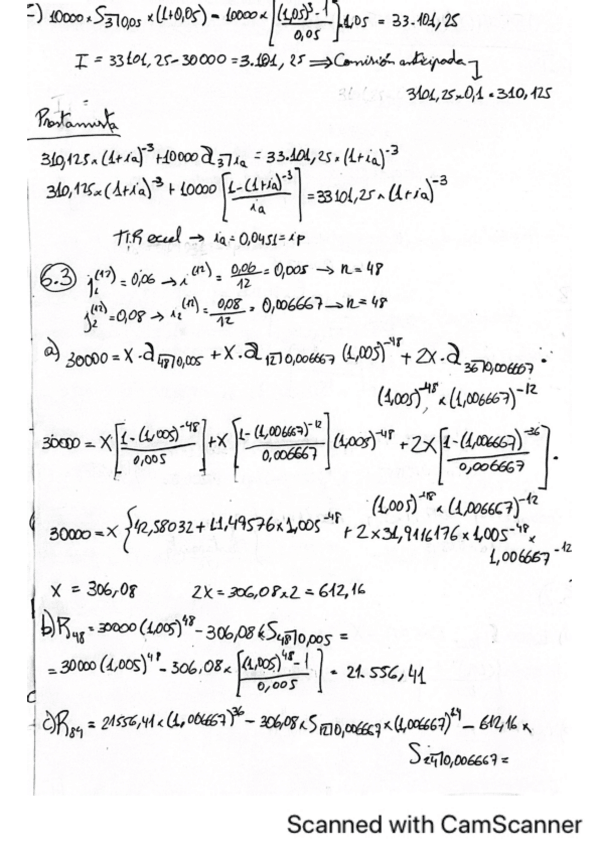 c) 10000 × S3┐0,05 × (1+0,05) - 10000 × [(1,05)^3 - 1 / 0,05] 1,05 = 33.101,25
I = 33101,25 - 30000 = 3.101,25 ⇒ Comisión anticipada
3101,25 × 0,1 = 310,125
Prestamista
310,125 × (1+ia)^-3 + 10000 a3┐ia = 33.101,25 × (1+ia)^-3
310,125 × (1+ia)^-3 + 10000 [1-(1+ia)^-3 / ia] = 33101,25 × (1+ia)^-3
TIR excel → ia = 0,0451 = ip
6.3 j1^(12) = 0,06 → i^(12) = 0,06/12 = 0,005 → n = 48
j2^(12) = 0,08 → i2^(12) = 0,08/12 = 0,006667 → n = 48
a) 30000 = X · a48┐0,005 + X · a12┐0,006667 (1,005)^-48 + 2X · a36┐0,006667 ·
(1,005)^-48 × (1,006667)^-12
30000 = X [1-(1,005)^-48 / 0,005] + X [1-(1,006667)^-12 / 0,006667] (1,005)^-48 + 2X [1-(1,006667)^-36 / 0,006667] ·
(1,005)^-48 × (1,006667)^-12
30000 = X {42,58032 + 11,49576 × 1,005^-48 + 2 × 31,9116176 × 1,005^-48 ×
1,006667^-12
X = 306,08 2X = 306,08 × 2 = 612,16
b) R48 = 30000 (1,005)^48 - 306,08 × S48┐0,005 =
= 30000 (1,005)^48 - 306,08 × [(1,005)^48 - 1 / 0,005] = 21.556,41
c) R84 = 21556,41 × (1,006667)^36 - 306,08 × S12┐0,006667 × (1,006667)^24 - 612,16 ×
S24┐0,006667 =
Scanned with CamScanner